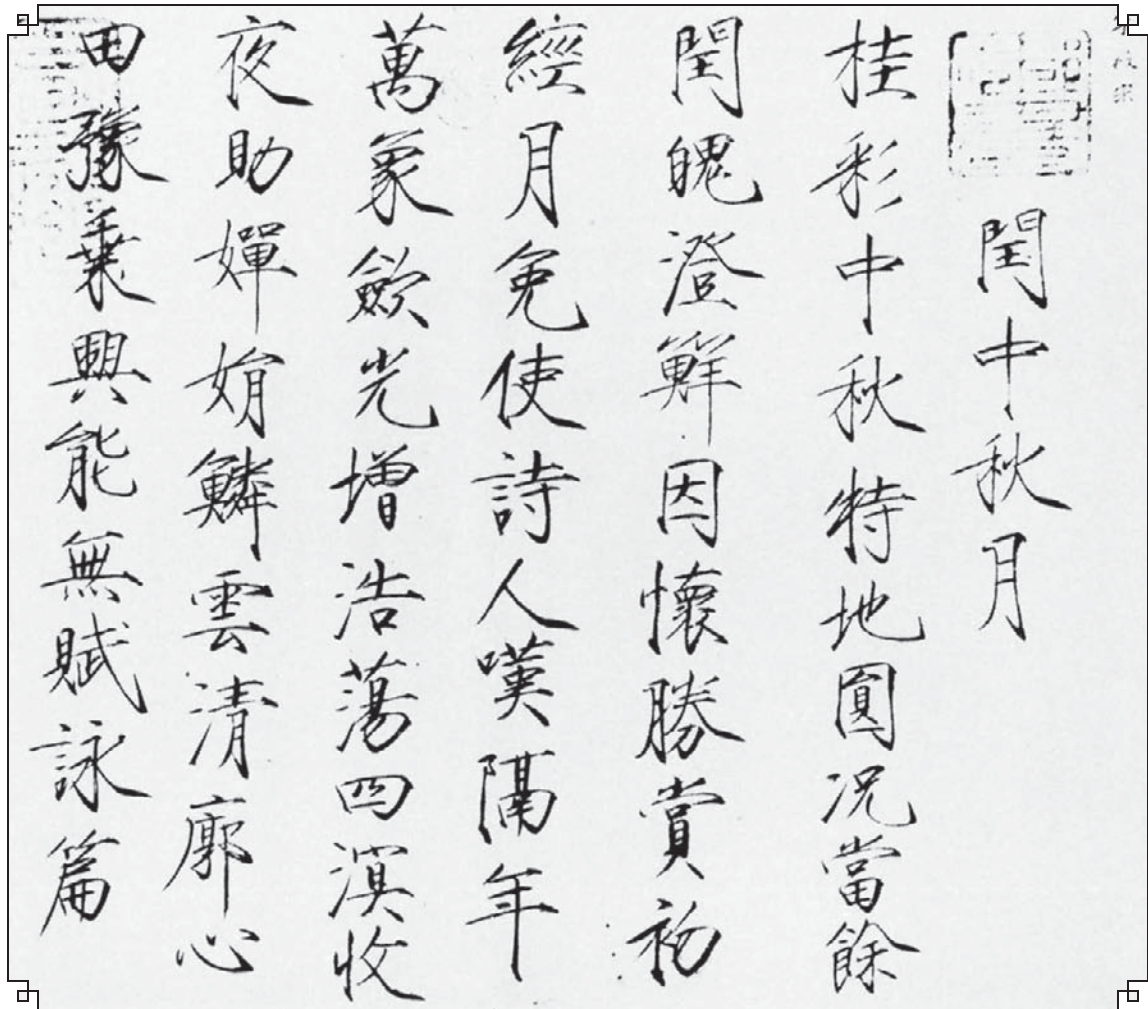 閏中秋月
桂彩中秋特地圓況當餘
閏魄澄鮮因懷勝賞初
經月免使詩人嘆隔年
萬象斂光增浩蕩四溟收
夜助嬋娟鱗雲清廓心
田豫乗興能無賦詠篇